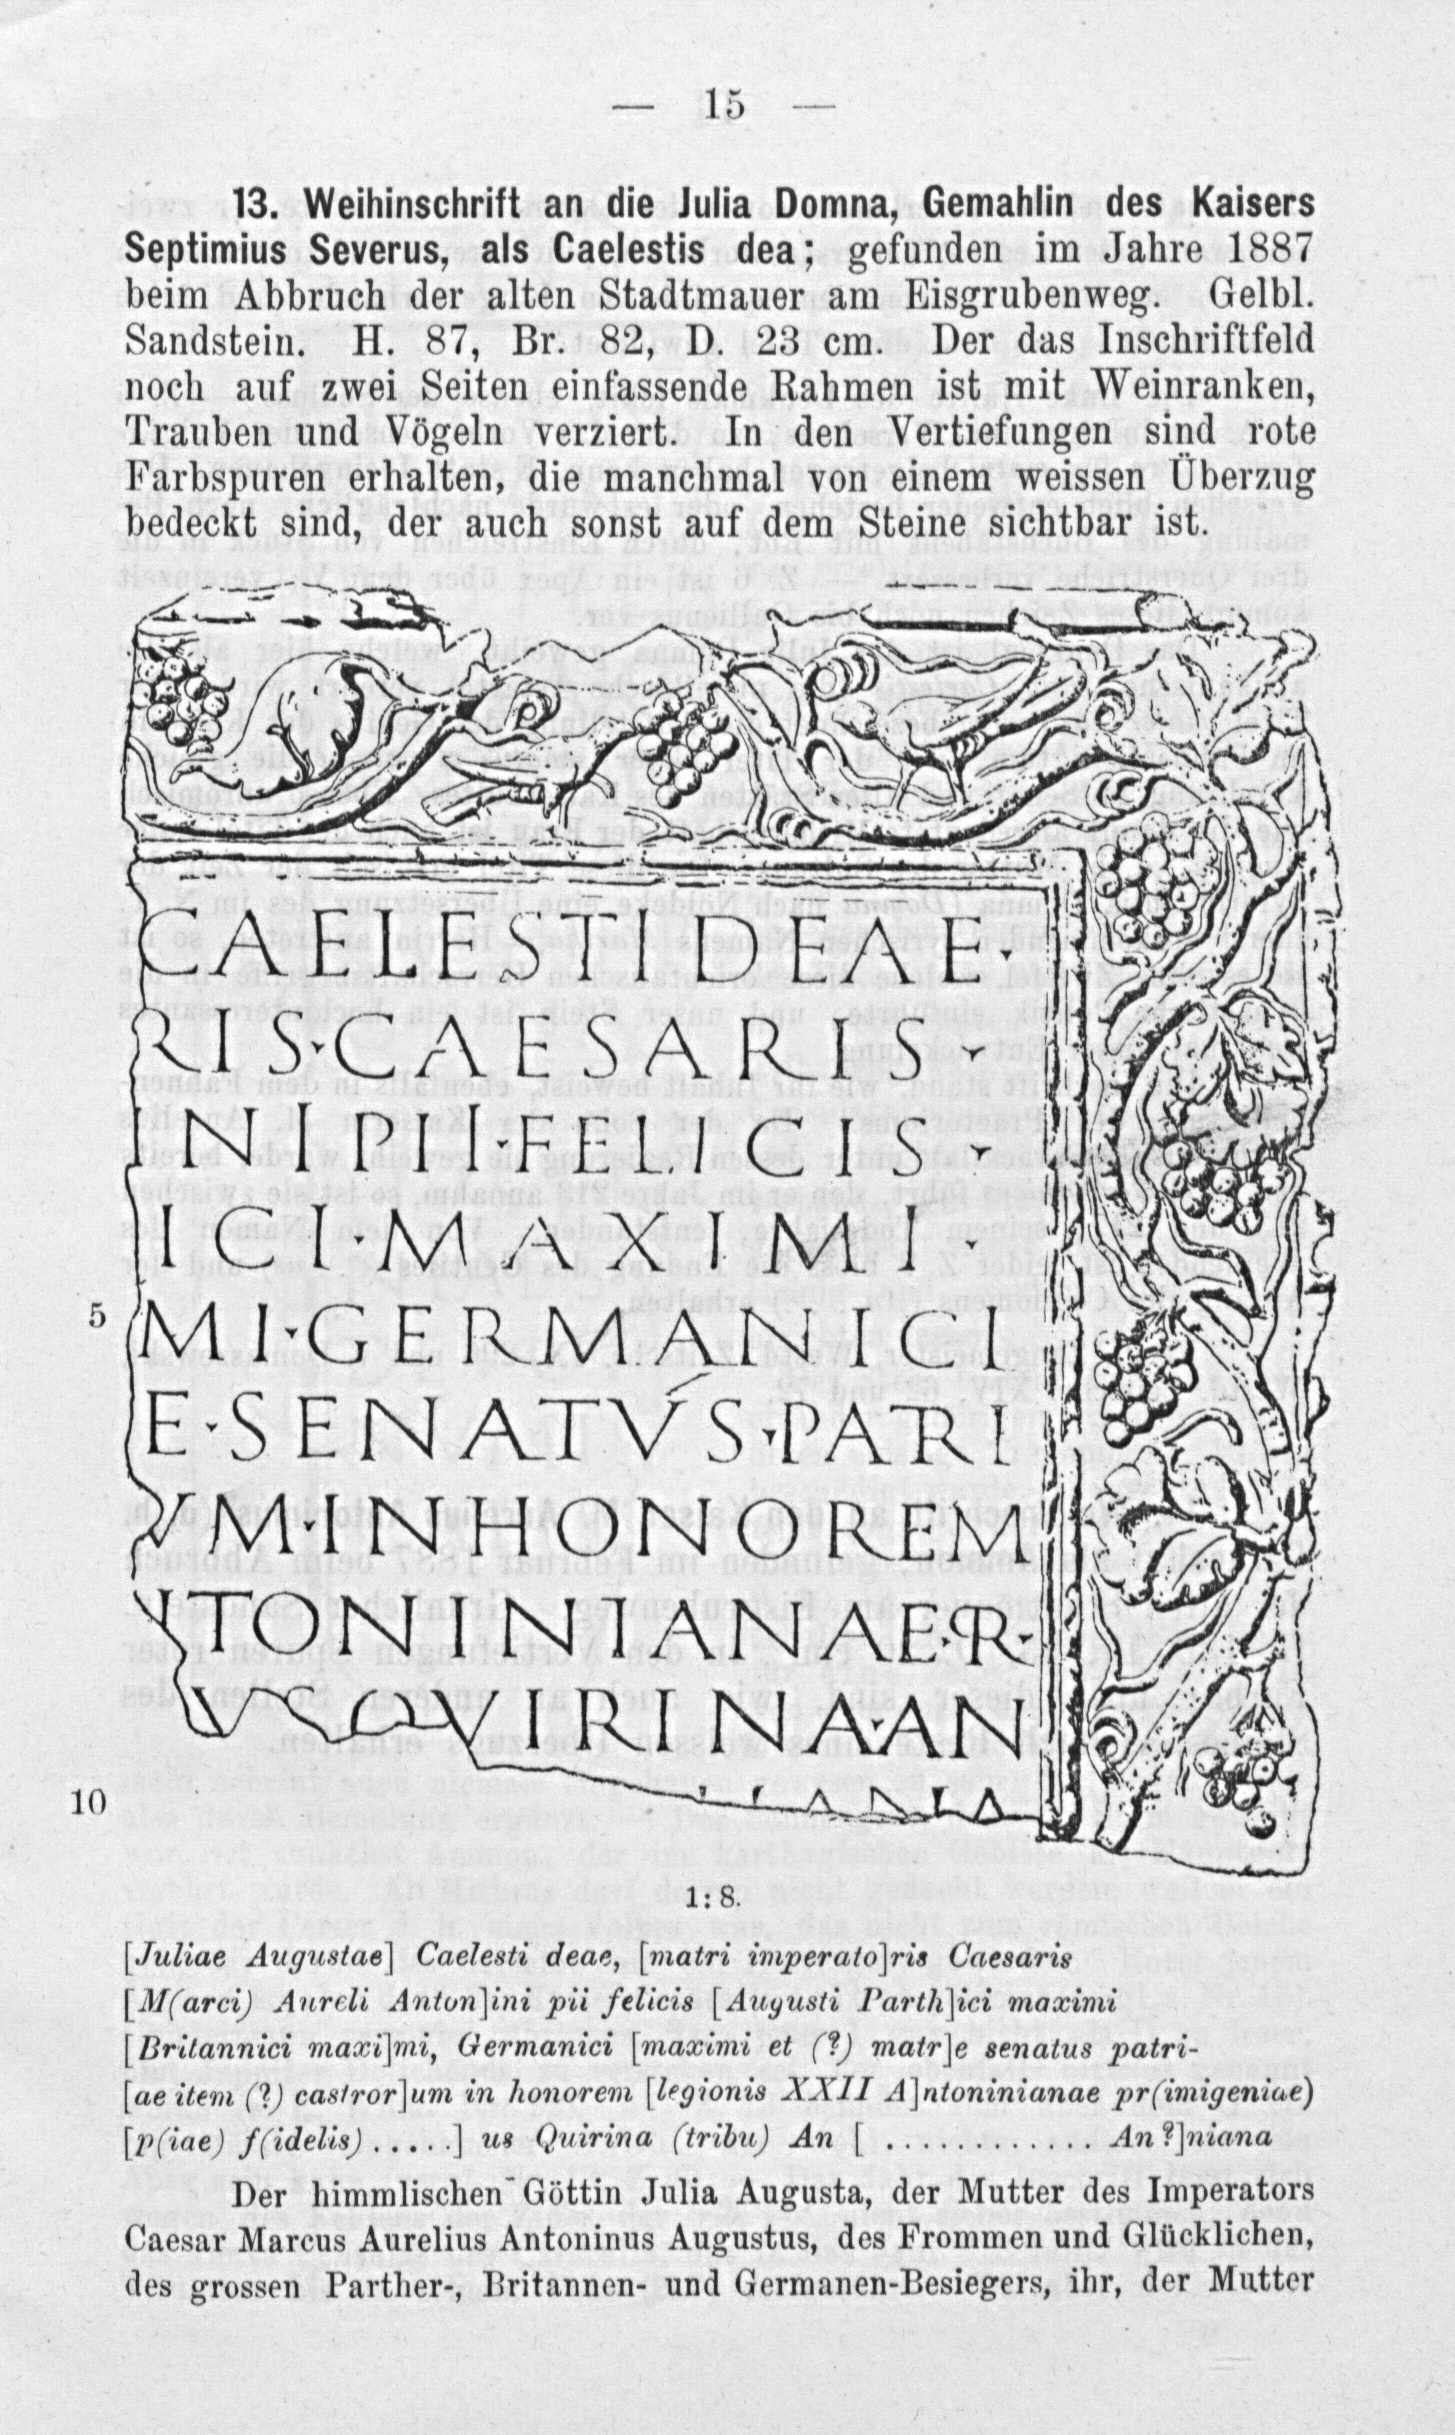 — 15 —
13. Weihinschrift an die Julia Domna, Gemahlin des Kaisers
Septimius Severus, als Caelestis dea; gefunden im Jahre 1887
beim Abbruch der alten Stadtmauer am Eisgrubenweg. Gelbl.
Sandstein. H. 87, Br. 82, D. 23 cm. Der das Inschriftfeld
noch auf zwei Seiten einfassende Rahmen ist mit Weinranken,
Trauben und Vögeln verziert. In den Vertiefungen sind rote
Farbspuren erhalten, die manchmal von einem weissen Überzug
bedeckt sind, der auch sonst auf dem Steine sichtbar ist.
CAELESTI DEAE·
RIS·CAESARIS·
INI PII·FELICIS·
ICI·MAXIMI·
5 MI·GERMANICI
E·SENATVS·PATRI
VM·INHONOREM
NTONINIANAE·PR·
VSQVIRINA·AN
10 IANIA
1:8.
[Juliae Augustae] Caelesti deae, [matri imperato]ris Caesaris
[M(arci) Aureli Anton]ini pii felicis [Augusti Parth]ici maximi
[Britannici maxi]mi, Germanici [maximi et (?) matr]e senatus patri-
[ae item (?) castror]um in honorem [legionis XXII A]ntoninianae pr(imigeniae)
[p(iae) f(idelis) . . . . .] us Quirina (tribu) An [ . . . . . . . . . . . . An?]niana
Der himmlischen Göttin Julia Augusta, der Mutter des Imperators
Caesar Marcus Aurelius Antoninus Augustus, des Frommen und Glücklichen,
des grossen Parther-, Britannen- und Germanen-Besiegers, ihr, der Mutter